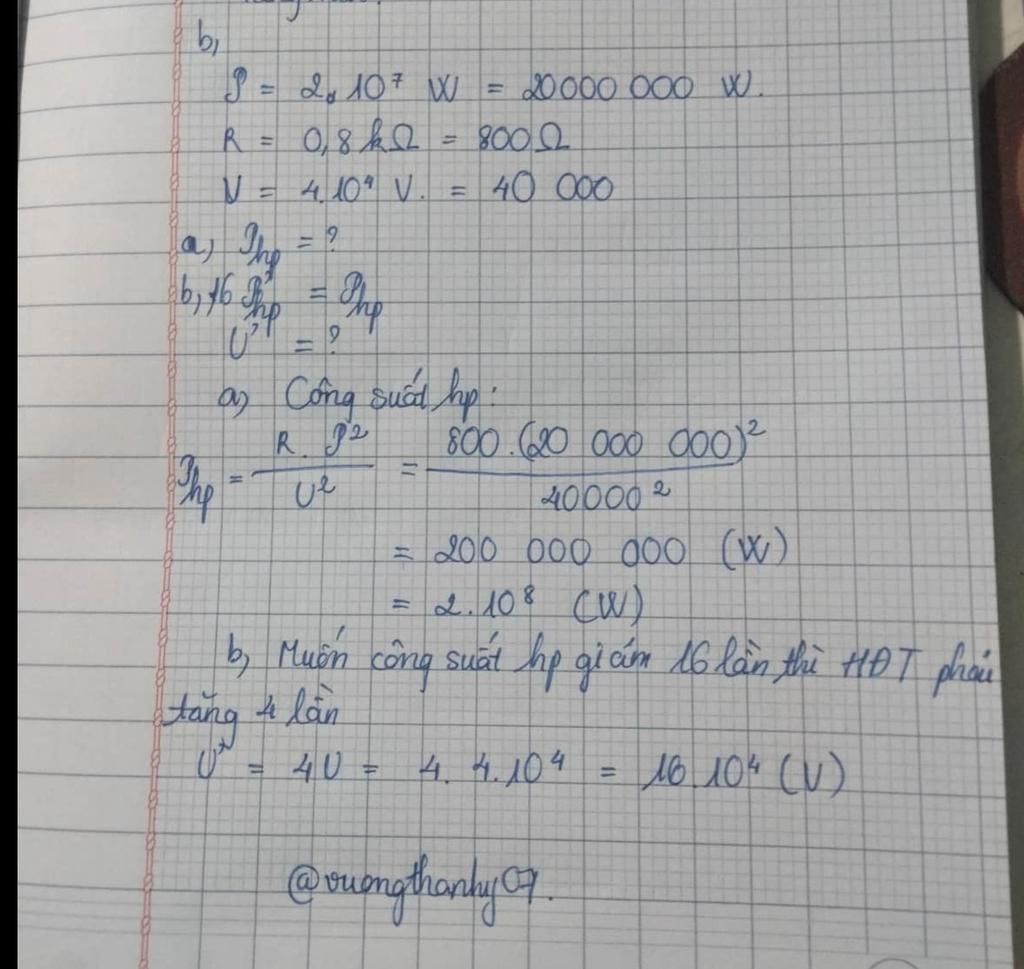 b,
P = 2.10⁷ W = 20000 000 W.
R = 0,8 kΩ = 800Ω
U = 4.10⁴ V. = 40 000
a, Php = ?
b, 16 P'hp = Php
U' = ?
a) Công suất hp:
Php = R. P² / U² = 800.(20 000 000)² / 40000²
= 200 000 000 (W)
= 2.10⁸ (W)
b, Muốn công suất hp giảm 16 lần thì HĐT phải
tăng 4 lần
U' = 4U = 4. 4.10⁴ = 16.10⁴ (V)
@vuongthanhy07.